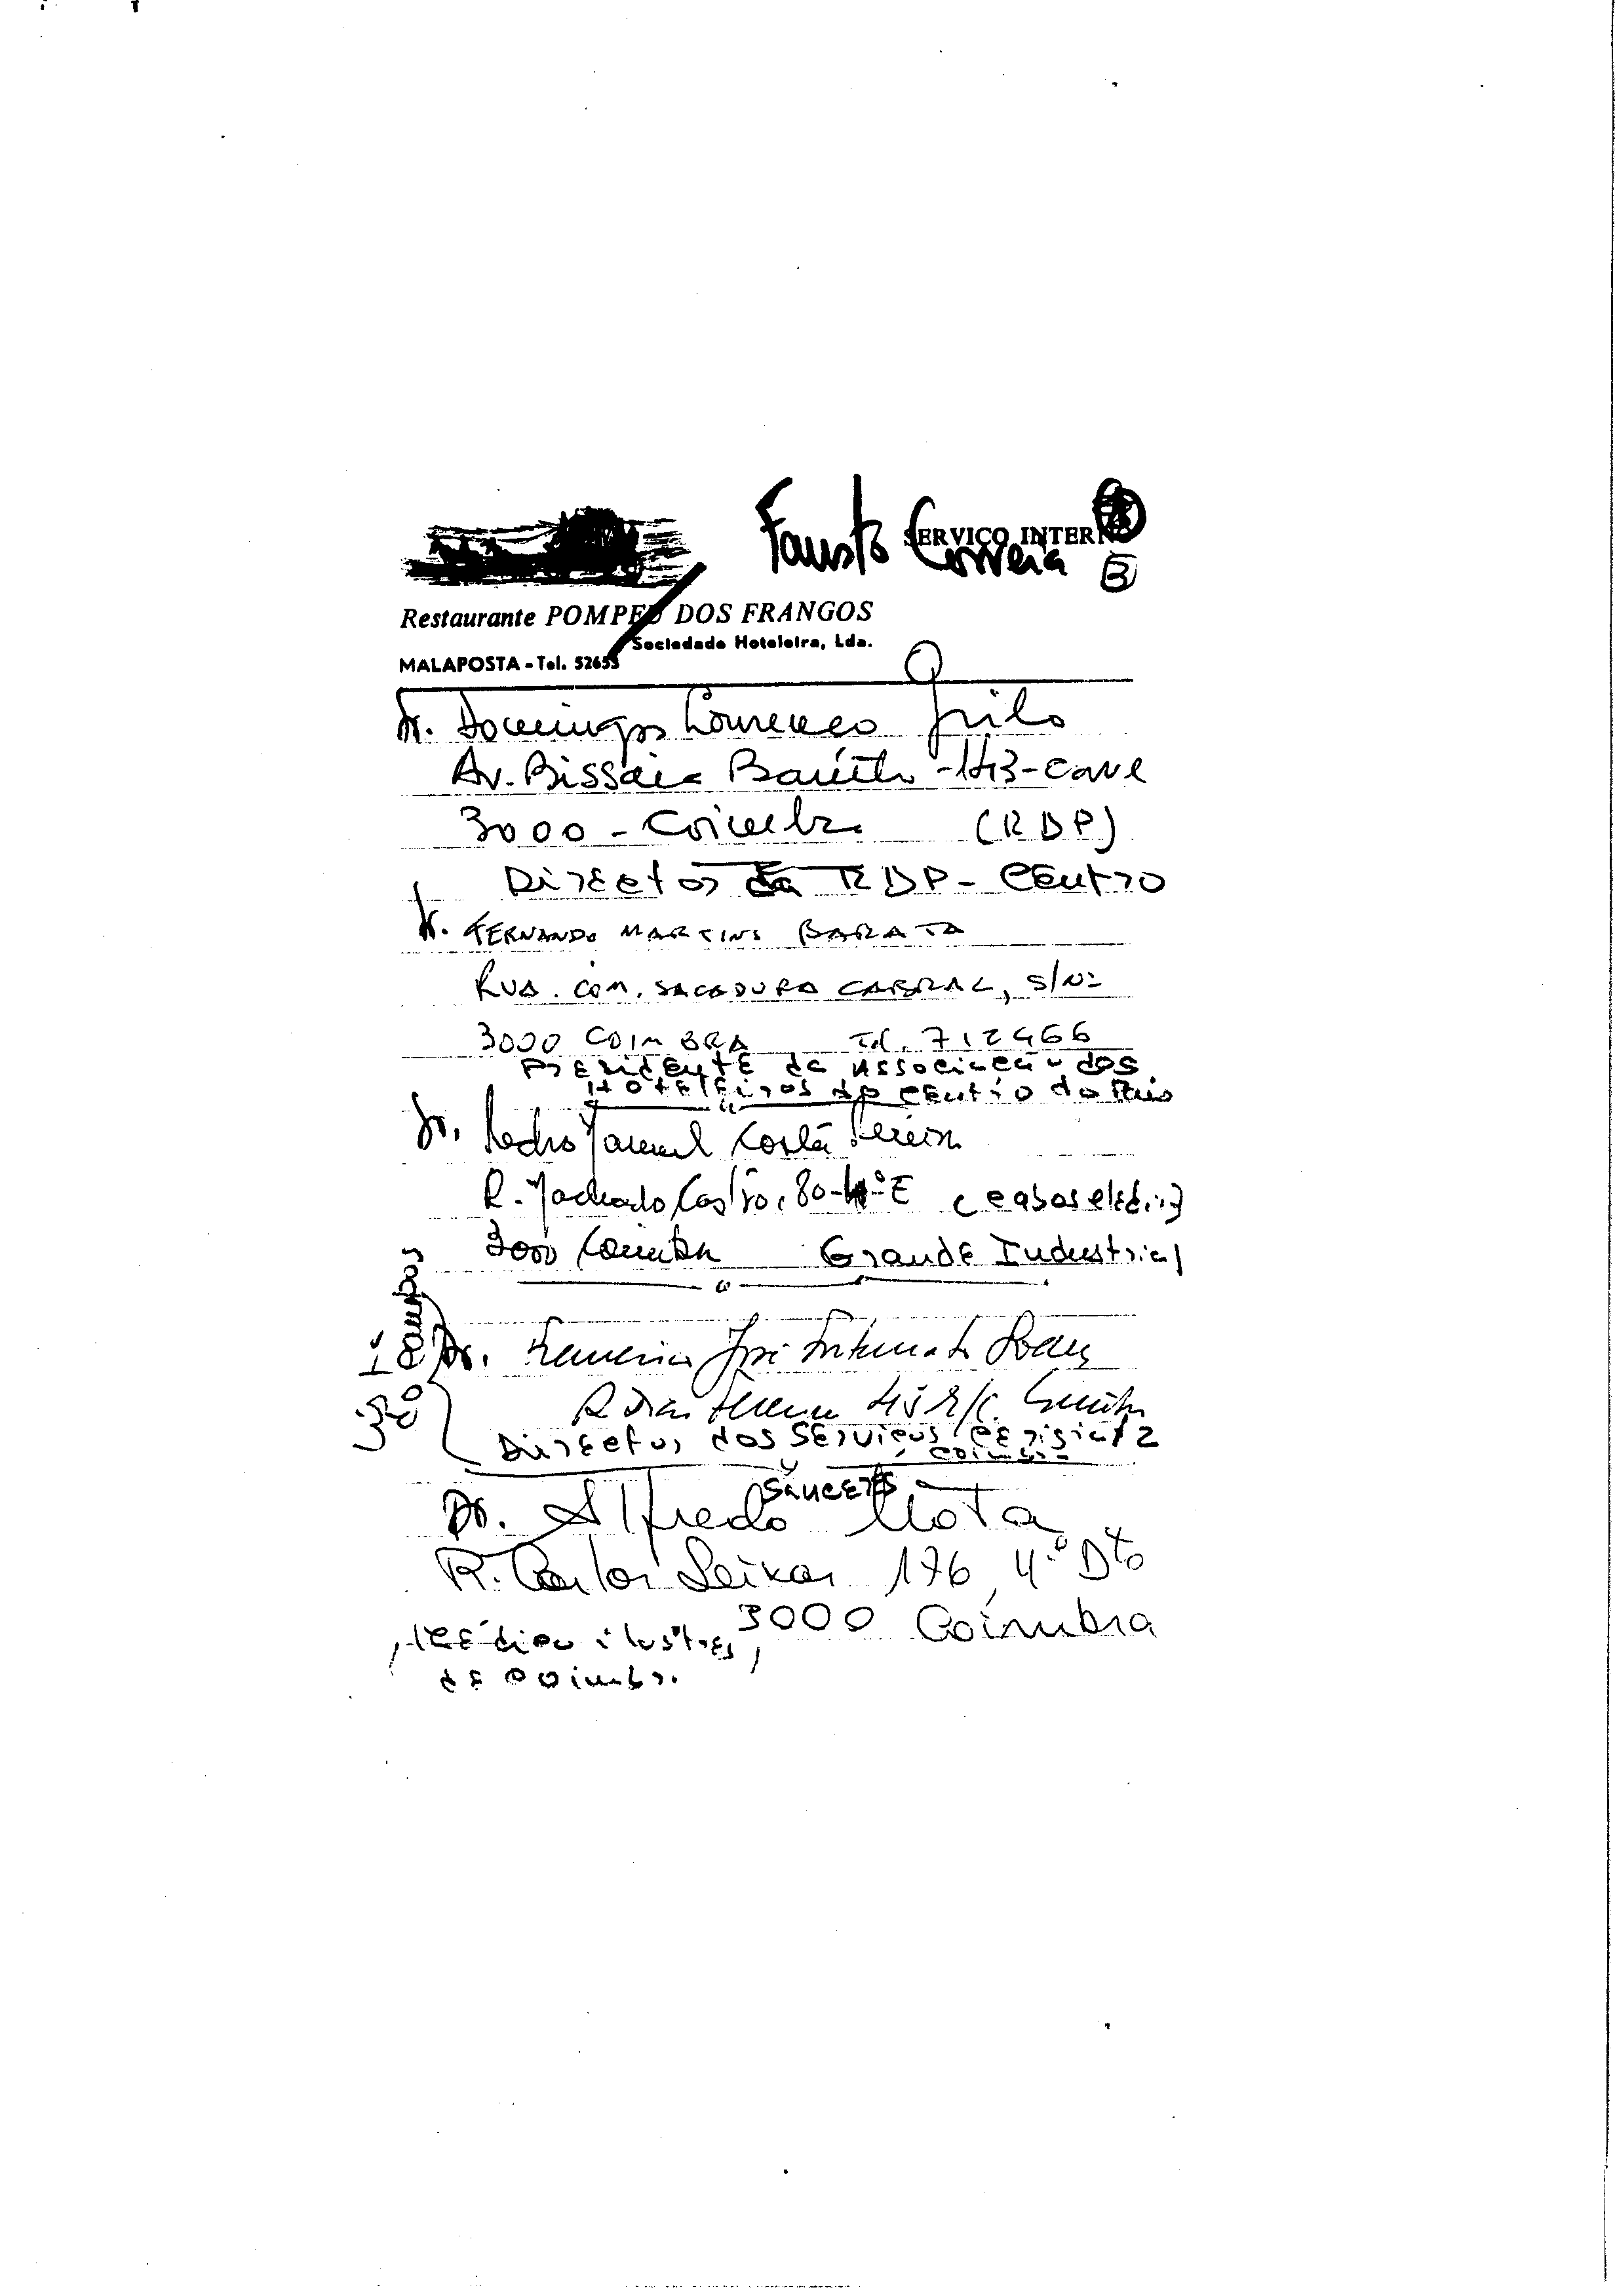 Fausto Correia
SERVIÇO INTERNO
B
Restaurante POMPEU DOS FRANGOS
Sociedade Hoteleira, Lda.
MALAPOSTA - Tel. 52653
Dr. Domingos Lourenço Grilo
Av. Bissaia Barreto - 143 - cave
3000 - Coimbra (RDP)
Director da RDP - Centro
Dr. FERNANDO MARTINS BARATA
RUA. COM. SACADURA CABRAL, S/Nº
3000 COIMBRA Tel. 712466
Presidente da Associação dos
Hoteleiros do Centro do País
Dr. Pedro Manuel Costa Pereira
R. Machado Castro, 80-4º-E
3000 Coimbra Grande Industrial
Dr. José Soares
R Dias 45 R/C. Coimbra
Director dos Serviços
Coimbra
Dr. Alfredo Mota
R. Carlos Seixas 176, 4º Dto
3000 Coimbra
ilustres,
de Coimbra